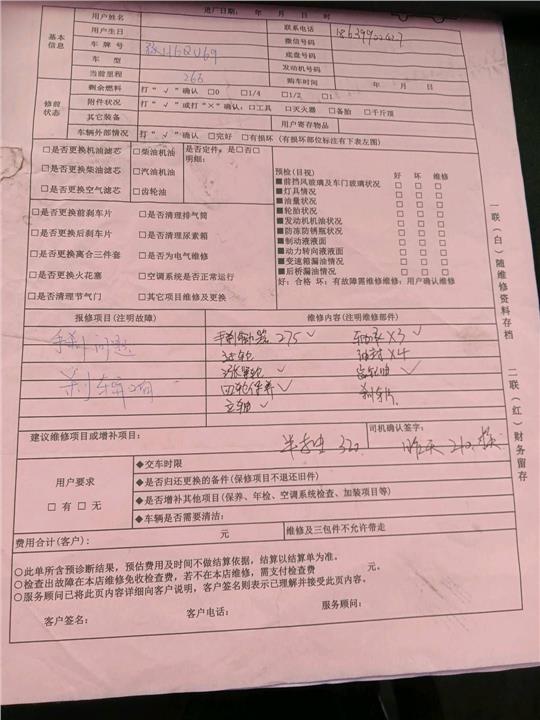 进厂日期： 年 月 日 时
基本信息
用户姓名 联系电话
用户生日 微信号码
车牌号 底盘号码
车型 发动机号码
当前里程 265 购车时间 年 月 日
修前状态
剩余燃料 打“√”确认 □0 □1/4 □1/2 □1
附件状况 打“√”或打“×”确认：□工具 □灭火器 □备胎 □千斤顶
其它装备 用户寄存物品
车辆外部情况 打“√”确认 □完好 □有损坏（有损坏部位标注有下表左图）
□是否更换机油滤芯 □柴油机油 是否定件：是□否□
明细：
□是否更换柴油滤芯 □汽油机油
□是否更换空气滤芯 □齿轮油
□是否更换前刹车片 □是否清理排气筒
□是否更换后刹车片 □是否清理尿素箱
□是否更换离合三件套 □是否为电气维修
□是否更换火花塞 □空调系统是否正常运行
□是否清理节气门 □其它项目维修及更换
预检（目视） 好 坏 维修
■前挡风玻璃及车门玻璃状况 □ □ □
■灯具情况 □ □ □
■油量状况 □ □ □
■轮胎状况 □ □ □
■发动机机油状况 □ □ □
■防冻防锈瓶状况 □ □ □
■制动液液面 □ □ □
■动力转向液液面 □ □ □
■变速箱漏油情况 □ □ □
■后桥漏油情况 □ □ □
好：合格 坏：有故障需维修维修：用户确认维修
报修项目（注明故障） 维修内容（注明维修部件）
手刹问题 275 √ 轴承×3 √
油封×4
刹车
四轮保养 刹车片
建议维修项目或增补项目： 司机确认签字：
用户要求
□有 □无
◆交车时限
◆是否归还更换的备件（保修项目不退还旧件）
◆是否增补其他项目（保养、年检、空调系统检查、加装项目等）
◆车辆是否需要清洁：
费用合计（客户）： 元 维修及三包件不允许带走
○此单所含预诊断结果，预估费用及时间不做结算依据，结算以结算单为准。
○检查出故障在本店维修免收检查费，若不在本店维修，需支付检查费 元。
○服务顾问已将此页内容详细向客户说明，客户签名则表示已理解并接受此页内容。
客户签名： 客户电话： 服务顾问：
一联（白）随维修资料存档 二联（红）财务留存